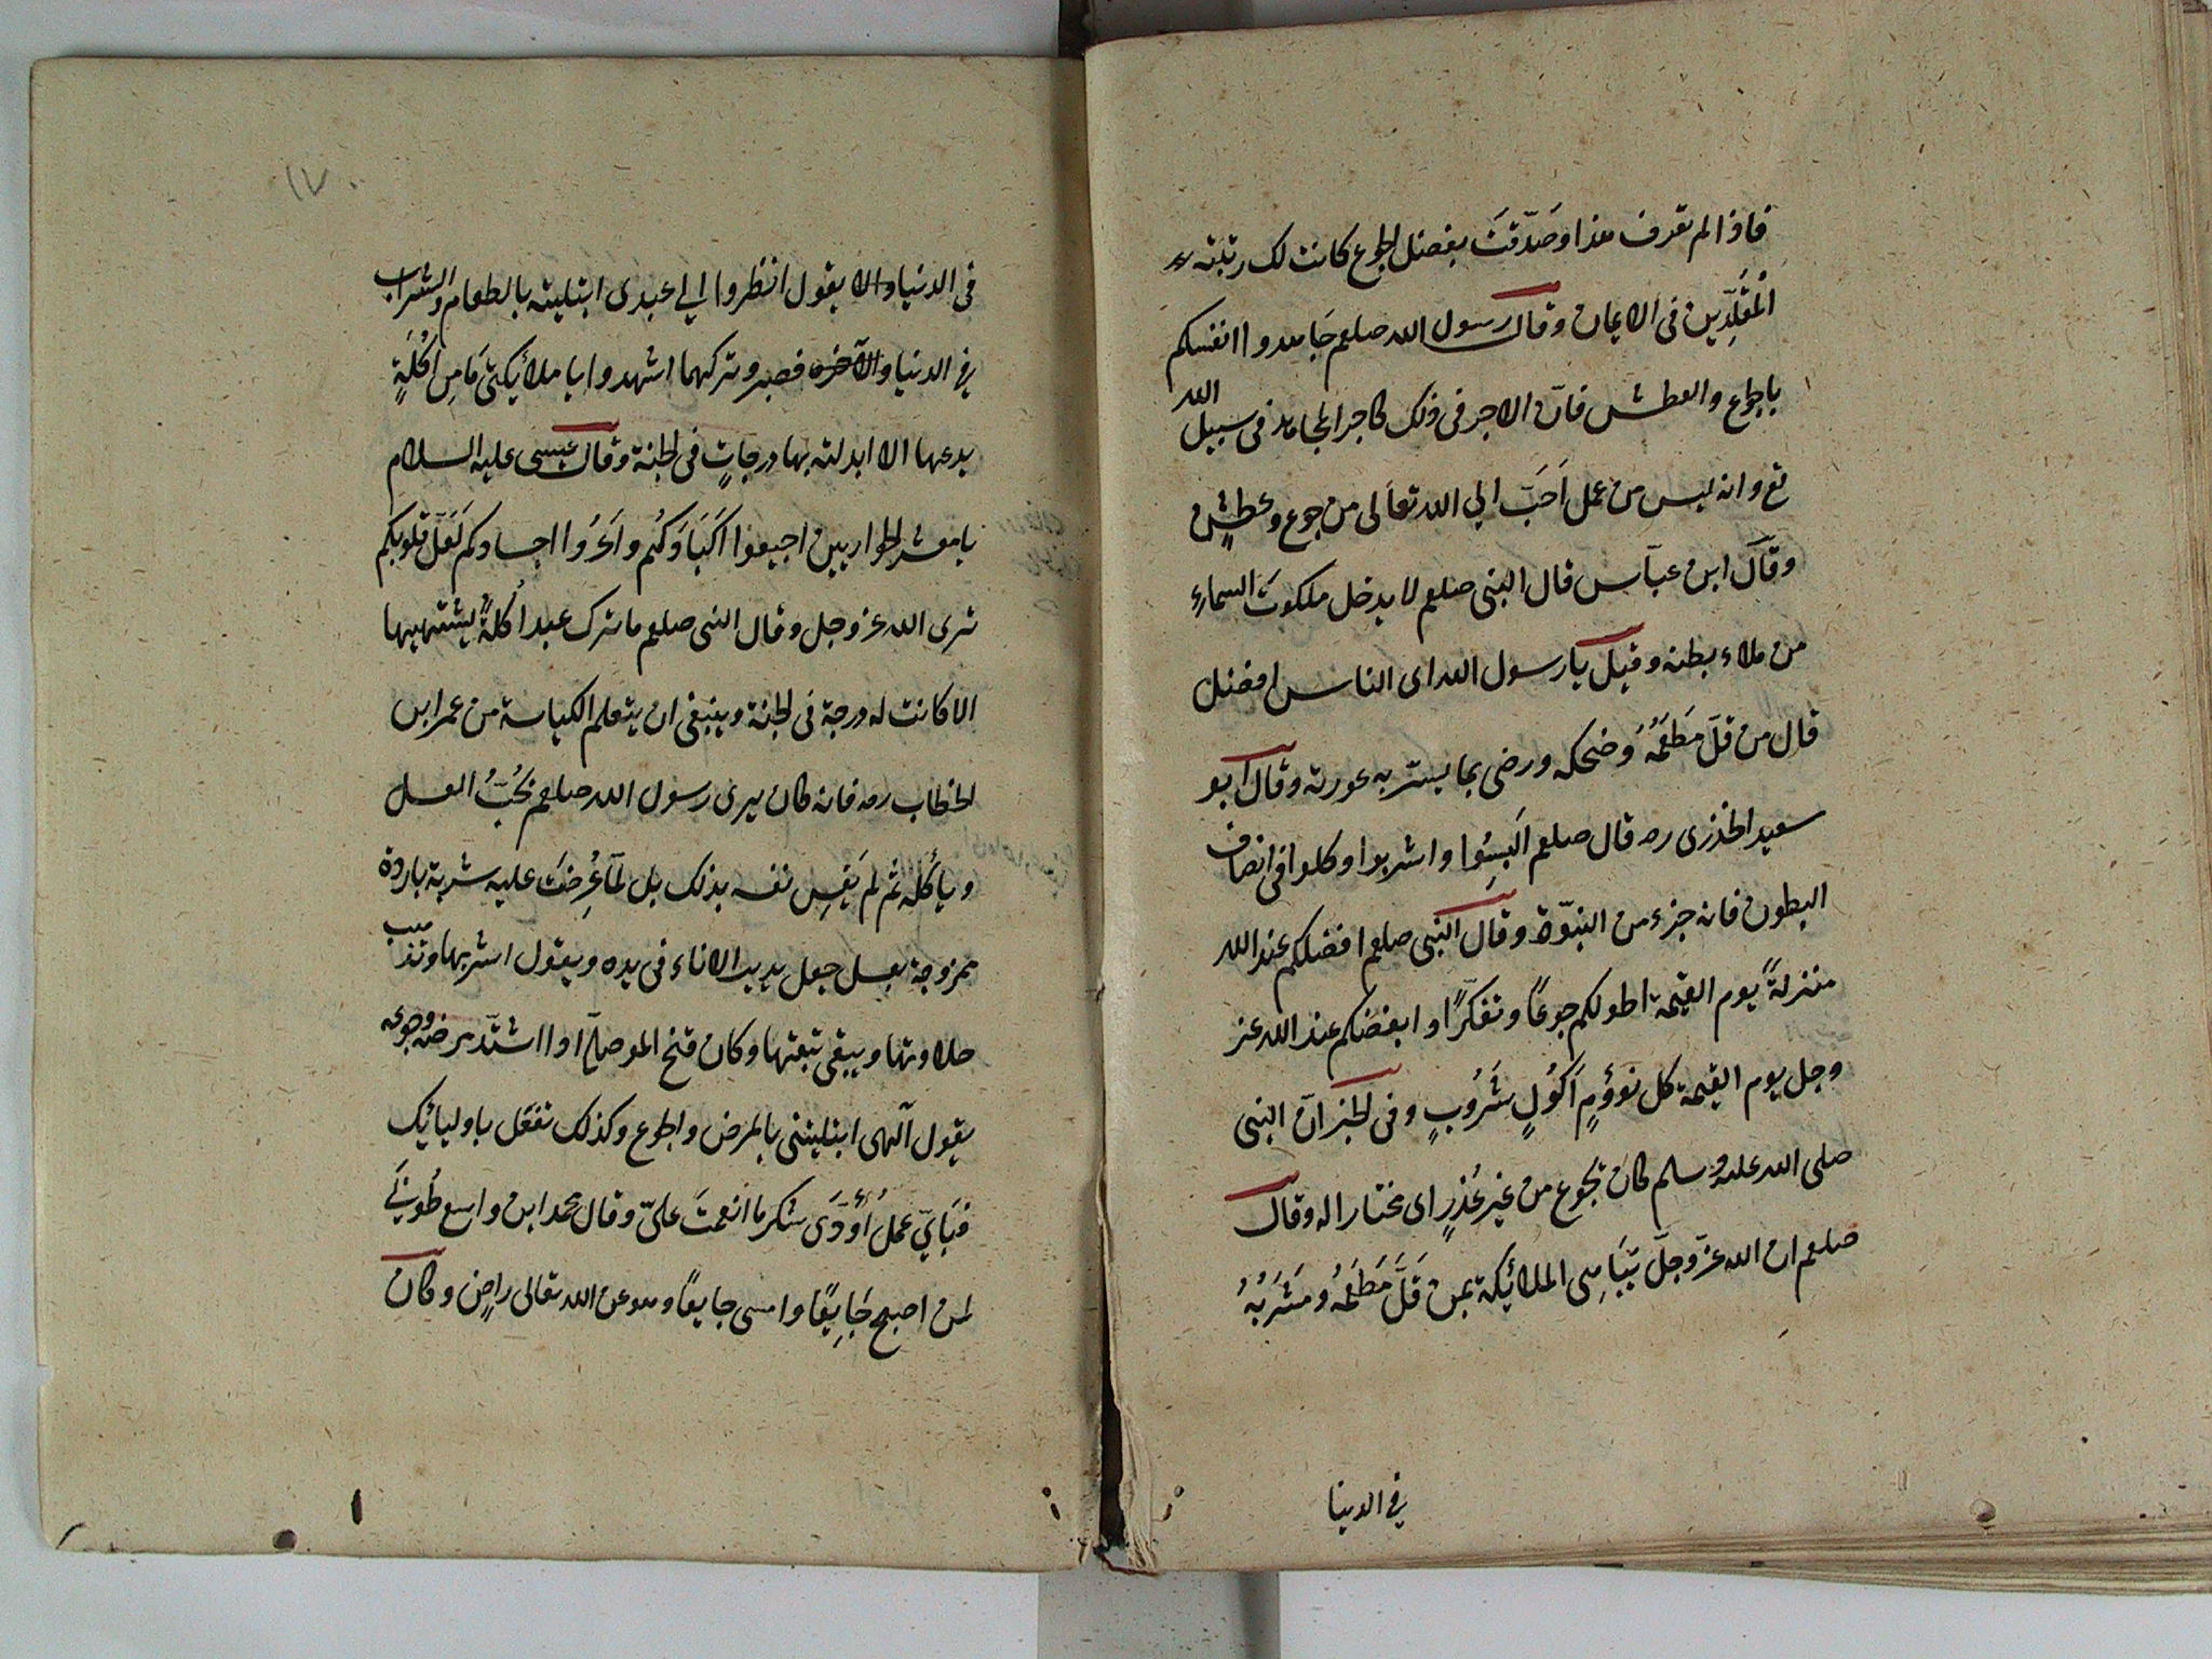 فاذا لم تعرف هذا وصَدّقتَ بفضل الجوع كانت لك رتبته
الْمُقَلِّدِين فى الايمان وقال رسول الله صلعم جَاهدوا انفسكم
باجوع والعطش فانّ الاجر فى ذلك كاجر المجاهد فى سبيل الله
تع وانه ليس من عمل اَحَبّ الى الله تعالى من جوع وعطشٍ
وقَالَ ابن عبّاس قال النبى صلعم لا يدخل ملكوتَ السماء
من ملاء بطنه وقيل يا رسول الله اى الناس افضل
قال من قلّ مَطعَمُهُ وضحكه ورضى بما يستر به عورته وقال ابو
سعيد الخذرى رم قال صلعم اَلبِسُوا واشربوا وكلوا فى انصاف
البطون فانه جزء من النبوّة وقال النبى صلعم افضلكم عند الله
منزلةً يوم القيمة اطولكم جوعًا وتفكّرًا وابغضكم عند الله عز
وجل يوم القيمة كل نوؤمٍ اَكُولٍ شَرُوبٍ وفى الخبر انّ النبى
صلى الله عليه وسلم كان يجوع من غير عُذرٍ اى مختارا له وقال
صلعم ان الله عزّ وجلّ يُبَاهِى الملائيكة بمن قَلَّ مَطعَمُهُ ومَشرَبُهُ
فى الدينا
١٧
فى الدنيا والا يقول انظروا الى عبدى ابتليته بالطعام والشراب
فى الدنيا والآخره فصبر وتركهما اشهدوا يا ملائيكتى مَا مِن اُكُلَةٍ
يدعها الا ابدلته بها درجاتٍ فى الجنة وقال عيسى عليه السلام
يا معشر الحواريين اجيعوا اَكبَادَكُم واعرُوا اجسادكم لَعَلَّ قلوبكم
ترى الله عز وجل وقال النبى صلعم ما ترك عبد اُكلةً يشتهيها
الا كانت له درجة فى الجنة وينبغى ان يتعلم الكياسة من عمر ابن
الخطاب رم فانه كان يرى رسول الله صلعم يُحِبُّ العسل
وياكُله ثم لم يَقِس نفسه بذلك بل لمّا عُرِضَت عليه شربة باردة
ممزوجة بعسل جعل يدير الاناء فى يده ويقول اشربها وتذهب
حلاوتها ويبقى تبعتها وكان فتح الموصلّى اذا اشتدّ مرضه وجوعه
يقول آلهى ابتليتنى بالمرض والجوع وكذلك تفعَل باوليائيك
فباَيّ عمل اُؤدَى شكر ما انعمتَ علىّ وقال محمد ابن واسع طُوبىٰ
لمن اصبح جَايِعًا وامسى جايعًا وهو عن الله تعالى راضٍ وكان